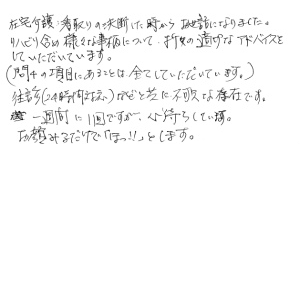 在宅介護、看取りの決断した時から お世話になりました。
リハビリ含め 様々な事柄について、折々の適切な アドバイスを
していただいています。
(問4の項目にあることは、全てしていただいています。)
往診(24時間対応)などと共に 不可欠な存在です。
一週間に1回ですが、心待ちしています。
お顔みるだけで「ほっ!!」とします。